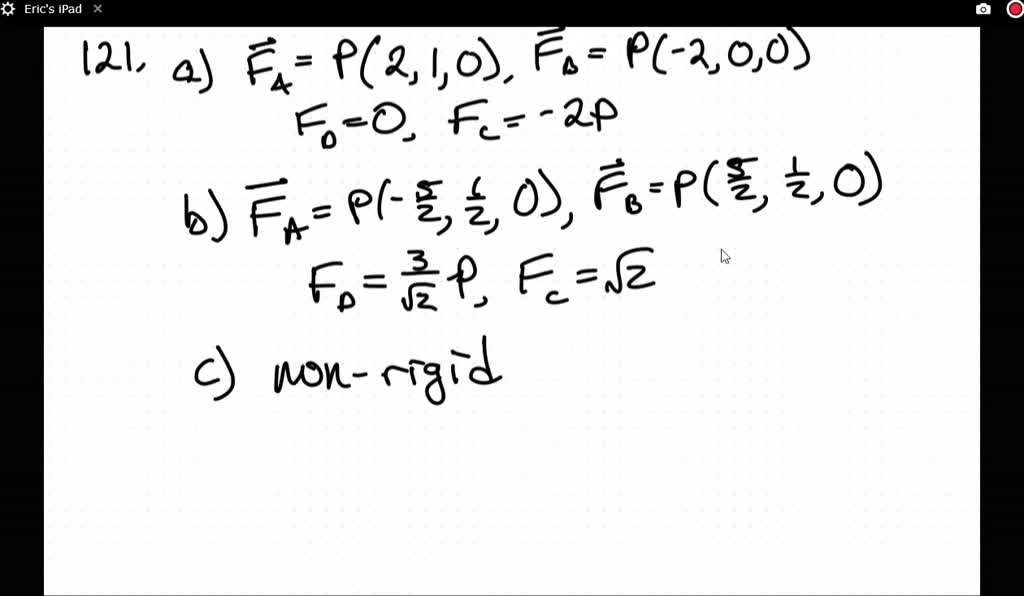 Eric's iPad ×
121. a) F⃗_A = P(2, 1, 0), F⃗_B = P(-2, 0, 0)
F_D = 0, F_C = -2P
b) F⃗_A = P(-5/2, 1/2, 0), F⃗_B = P(5/2, 1/2, 0)
F_D = 3/√2 P, F_C = √2
c) non-rigid